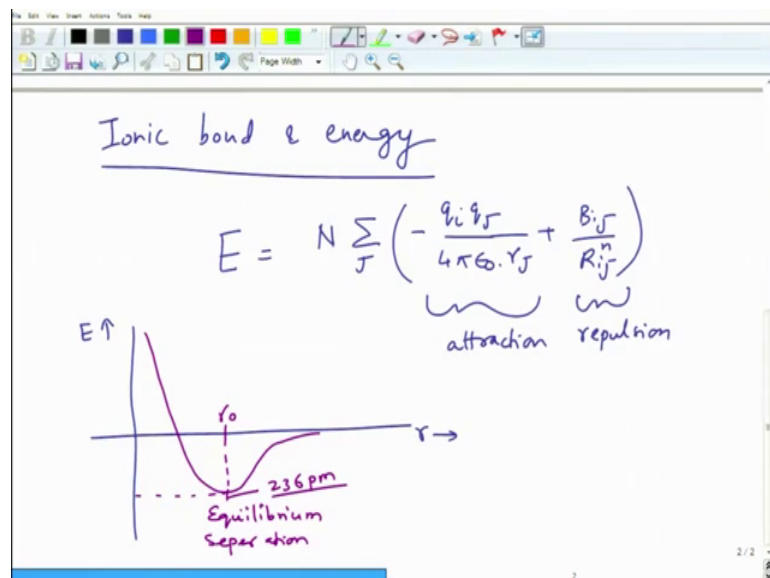 File Edit View Insert Actions Tools Help
B I
Page Width
Ionic bond & energy
E = N Σ_J ( - q_i q_J / 4πϵ_0 . r_J + B_iJ / R_iJ^n )
attraction repulsion
E ↑
r_0
r →
236 pm
Equilibrium
seperation
2 / 2
2